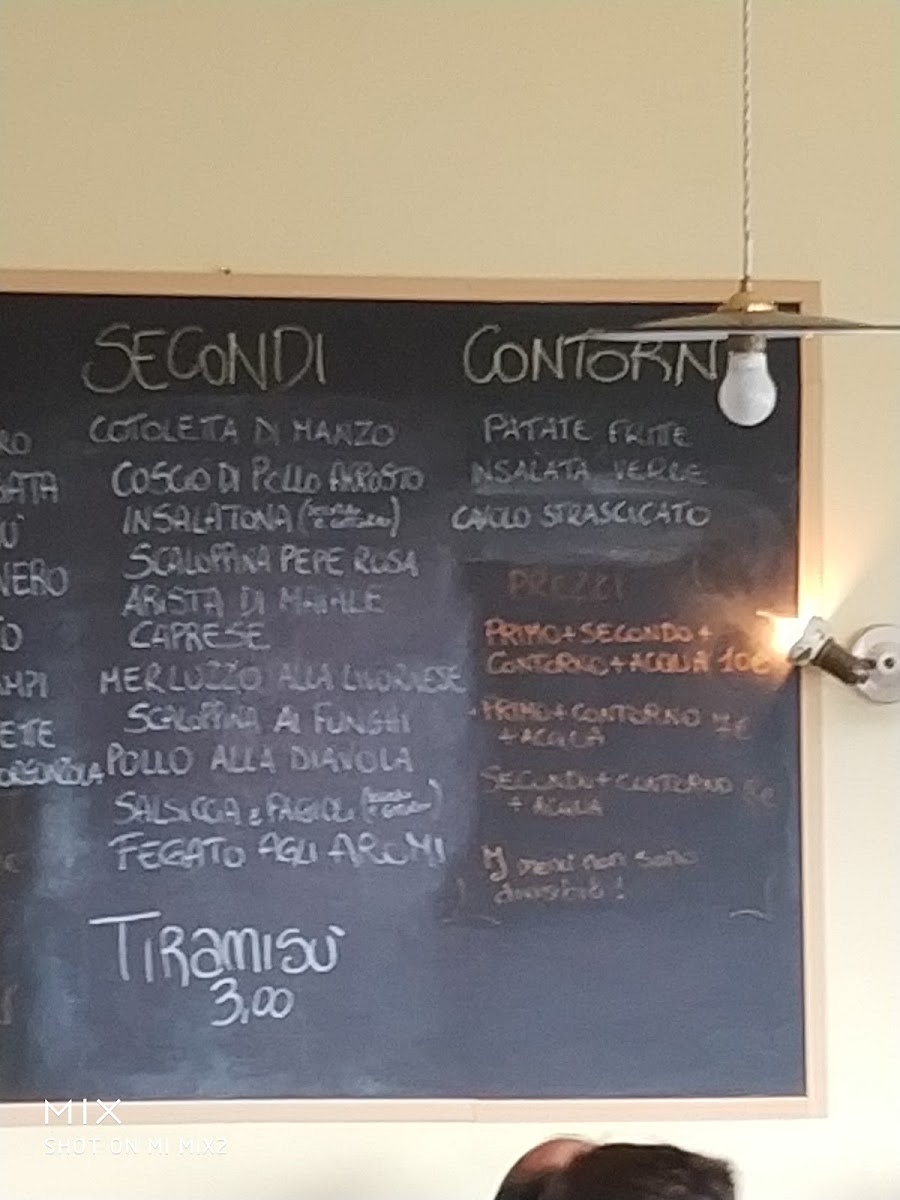 SECONDI
COTOLETTA DI MANZO
COSCIO DI POLLO ARROSTO
INSALATONA (SECONDO E CONTORNO)
SCALOPPINA PEPE ROSA
ARISTA DI MAIALE
CAPRESE
MERLUZZO ALLA LIVORNESE
SCALOPPINA AI FUNGHI
POLLO ALLA DIAVOLA
SALSICCIA E FAGIOLI
FEGATO AGLI AROMI
TIRAMISÙ
3,00
CONTORNI
PATATE FRITTE
INSALATA VERDE
CAVOLO STRASCICATO
PREZZI
PRIMO+SECONDO+
CONTORNO+ACQUA 10€
PRIMO+CONTORNO 7€
+ACQUA
SECONDO+CONTORNO
+ACQUA
I menù non sono
divisibili!
RO
GATA
NERO
TO
AMPI
ETE
ORGONZOLA
MIX
SHOT ON MI MIX2